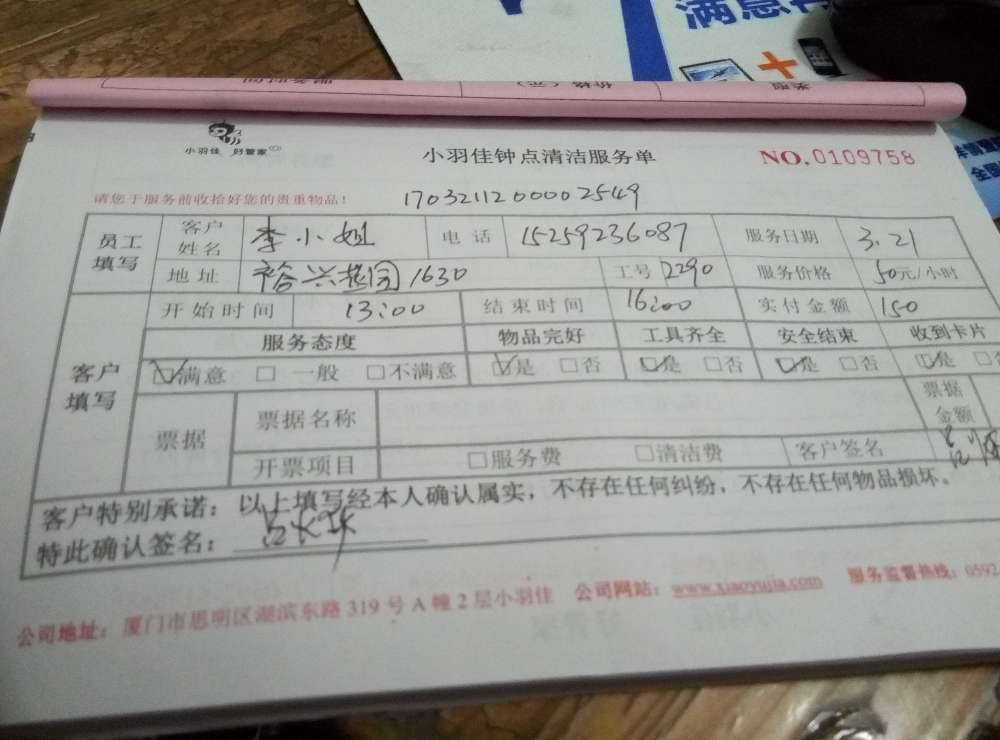 满意
小羽佳 好管家
小羽佳钟点清洁服务单
NO.0109758
请您于服务前收拾好您的贵重物品!
1703211200002549
员工填写 客户姓名 李小姐 电话 15259236087 服务日期 3.21
地址 裕兴花园1630 工号 2290 服务价格 50元/小时
客户填写 开始时间 13:00 结束时间 16:00 实付金额 150
服务态度 物品完好 工具齐全 安全结束 收到卡片
☑满意 □一般 □不满意 ☑是 □否 ☑是 □否 ☑是 □否 ☑是
票据 票据名称 票据金额
开票项目 □服务费 □清洁费 客户签名
客户特别承诺:以上填写经本人确认属实,不存在任何纠纷,不存在任何物品损坏。
特此确认签名:
公司地址:厦门市思明区湖滨东路319号A幢2层小羽佳 公司网站:www.xiaoyujia.com 服务监督热线:0592